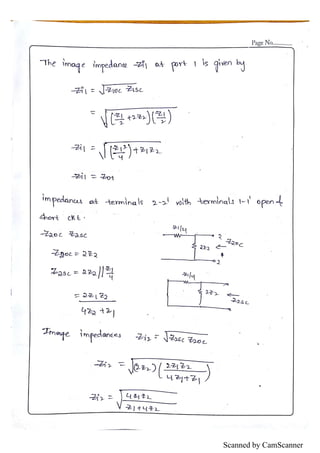 Page No...........
The image impedance Zi1 at port 1 is given by
Zi1 = √Z1oc Z1sc
= √(Z1/2 + 2Z2)(Z1/2)
Zi1 = √(Z1²/4) + Z1Z2
Zi1 = Z0T
impedances at terminals 2-2' with terminals 1-1' open &
short ckt.
Z2oc Z2sc
Z2oc = 2Z2
Z2sc = 2Z2 || Z1/4
= 2Z1Z2
4Z2 + Z1
Z1/4
2
2Z2
Z2oc
2
Z1/4
2Z2
Z2sc
Image impedances Zi2 = √Z2sc Z2oc
Zi2 = √(2Z2)(2Z1Z2/4Z1+Z1)
Zi2 = √4Z1Z2/Z1+4Z2
Scanned by CamScanner